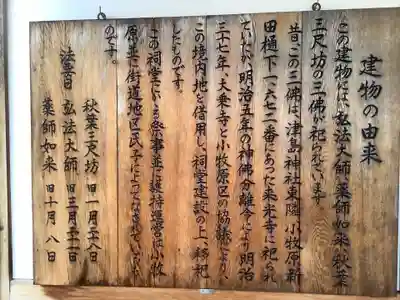 建物の由来
この建物には弘法大師・薬師如来・秋葉
三尺坊の三佛が祀られています
昔、この三佛は、津島神社東隣（小牧原新
田樋下一、六七二番）にあった来光寺に祀られ
ていたが、明治五年の神佛分離令により、明治
三十七年、大乗寺と小牧原区の協議により
この境内地を信用し、祠堂建設の上、移祀
したものです。
この祠堂にいる祭事並に護持運営は小牧
原並に街道地区氏子によってなされているも
のです。
法音日
秋葉三尺坊 旧一月二八日
弘法大師 旧三月二一日
薬師如来 旧十月八日